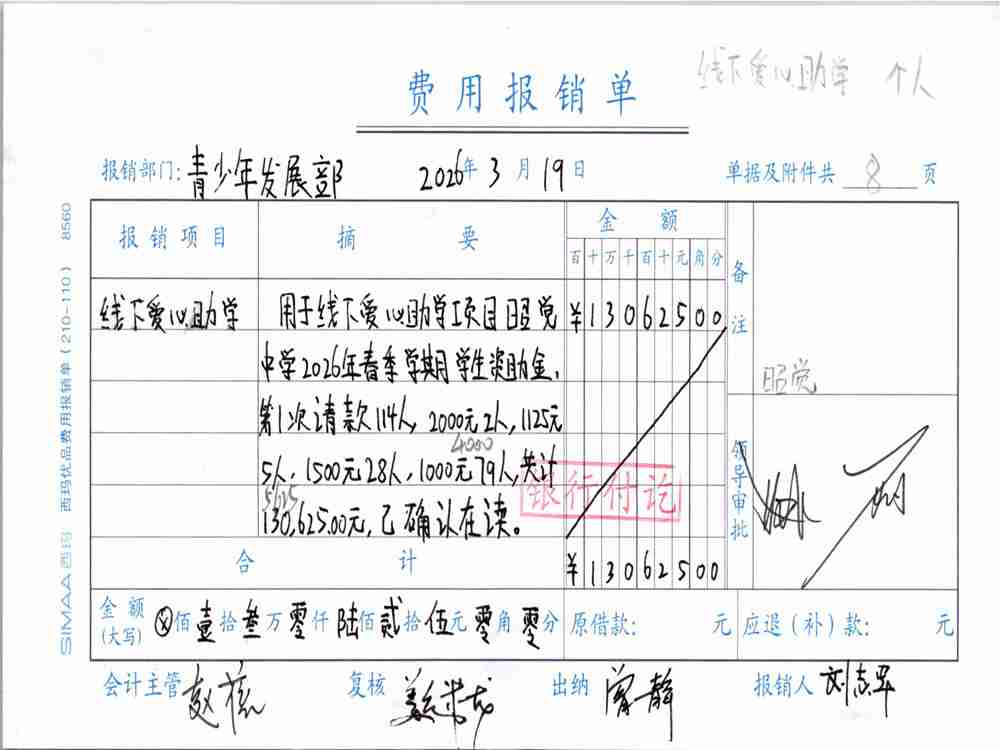 线下爱心助学 个人
费用报销单
报销部门:青少年发展部 2026年3月19日 单据及附件共 8 页
SIMAA 西玛 西玛优品费用报销单(210-110) 8560
报销项目 摘要 金额 备注
百十万千百十元角分
线下爱心助学 用于线下爱心助学项目昭觉 ¥13062500
中学2026年春季学期学生资助金,
昭觉
第1次请款114人, 2000元2人, 1125元
4000
5人, 1500元28人, 1000元79人,共计
5625
130,625.00元,已确认在读。
银行付讫
领导审批
合计 ¥13062500
金额(大写) ⊗佰壹拾叁万零仟陆佰贰拾伍元零角零分 原借款: 元 应退(补)款: 元
会计主管 复核 出纳 曾静 报销人 刘志军